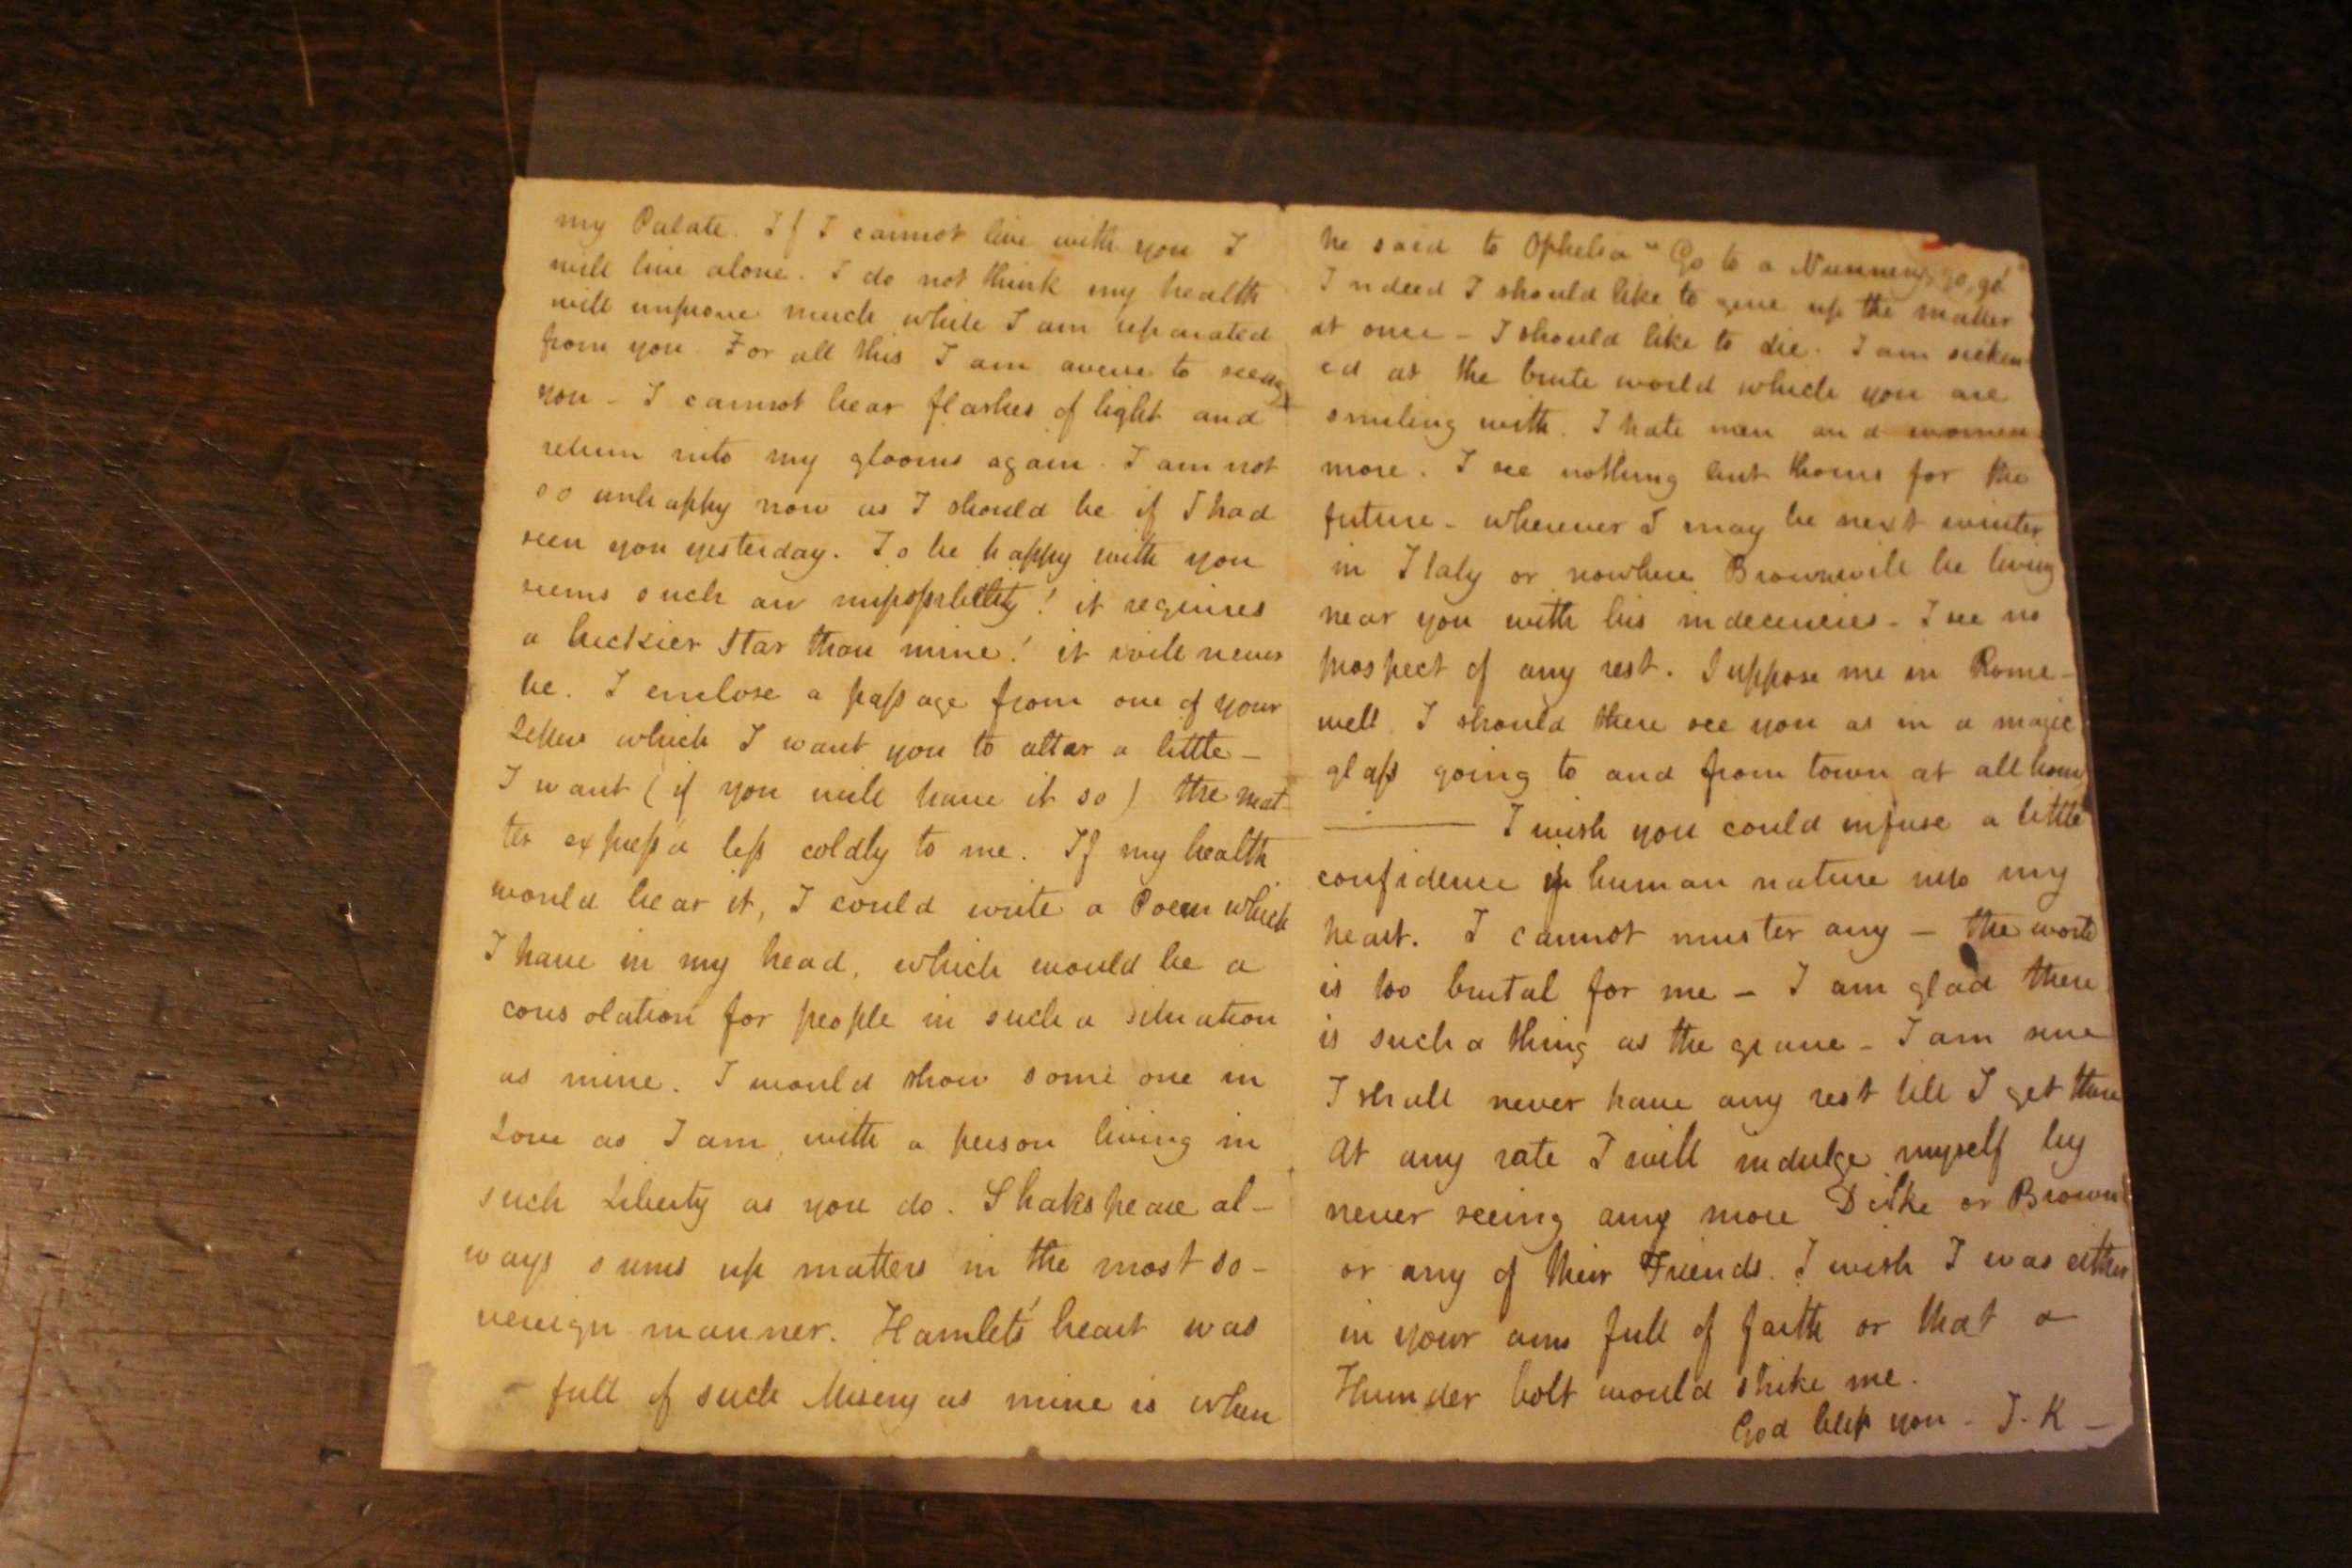 my Palate. If I cannot live with you I
will live alone. I do not think my health
will improve much while I am separated
from you. For all this I am averse to seeing
you - I cannot bear flashes of light and
return into my glooms again. I am not
so unhappy now as I should be if I had
seen you yesterday. To be happy with you
seems such an impossibility! it requires
a luckier Star than mine! it will never
be. I enclose a passage from one of your
Letters which I want you to alter a little -
I want (if you will have it so) the mat-
ter express'd less coldly to me. If my health
would bear it, I could write a Poem which
I have in my head, which would be a
consolation for people in such a situation
as mine. I would show some one in
Love as I am, with a person living in
such Liberty as you do. Shakspeare al-
ways sums up matters in the most so-
vereign manner. Hamlet's heart was
full of such Misery as mine is when
he said to Ophelia "Go to a Nunnery, go, go!"
Indeed I should like to give up the matter
at once - I should like to die. I am sicken
ed at the brute world which you are
smiling with. I hate men and women
more. I see nothing but thorns for the
future - wherever I may be next winter
in Italy or nowhere Brown will be living
near you with his indecencies - I see no
prospect of any rest. Suppose me in Rome -
well, I should there see you as in a magic
glass going to and from town at all hours
— I wish you could infuse a little
confidence in human nature into my
heart. I cannot muster any - the world
is too brutal for me - I am glad there
is such a thing as the grave - I am sure
I shall never have any rest till I get there
At any rate I will indulge myself by
never seeing any more Dilke or Brown
or any of their Friends. I wish I was either
in your arms full of faith or that a
Thunder bolt would strike me.
God bless you - J. K -